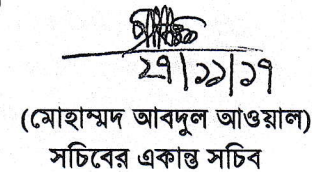 ২৭|১১|১৭
(মোহাম্মদ আবদুল আওয়াল)
সচিবের একান্ত সচিব